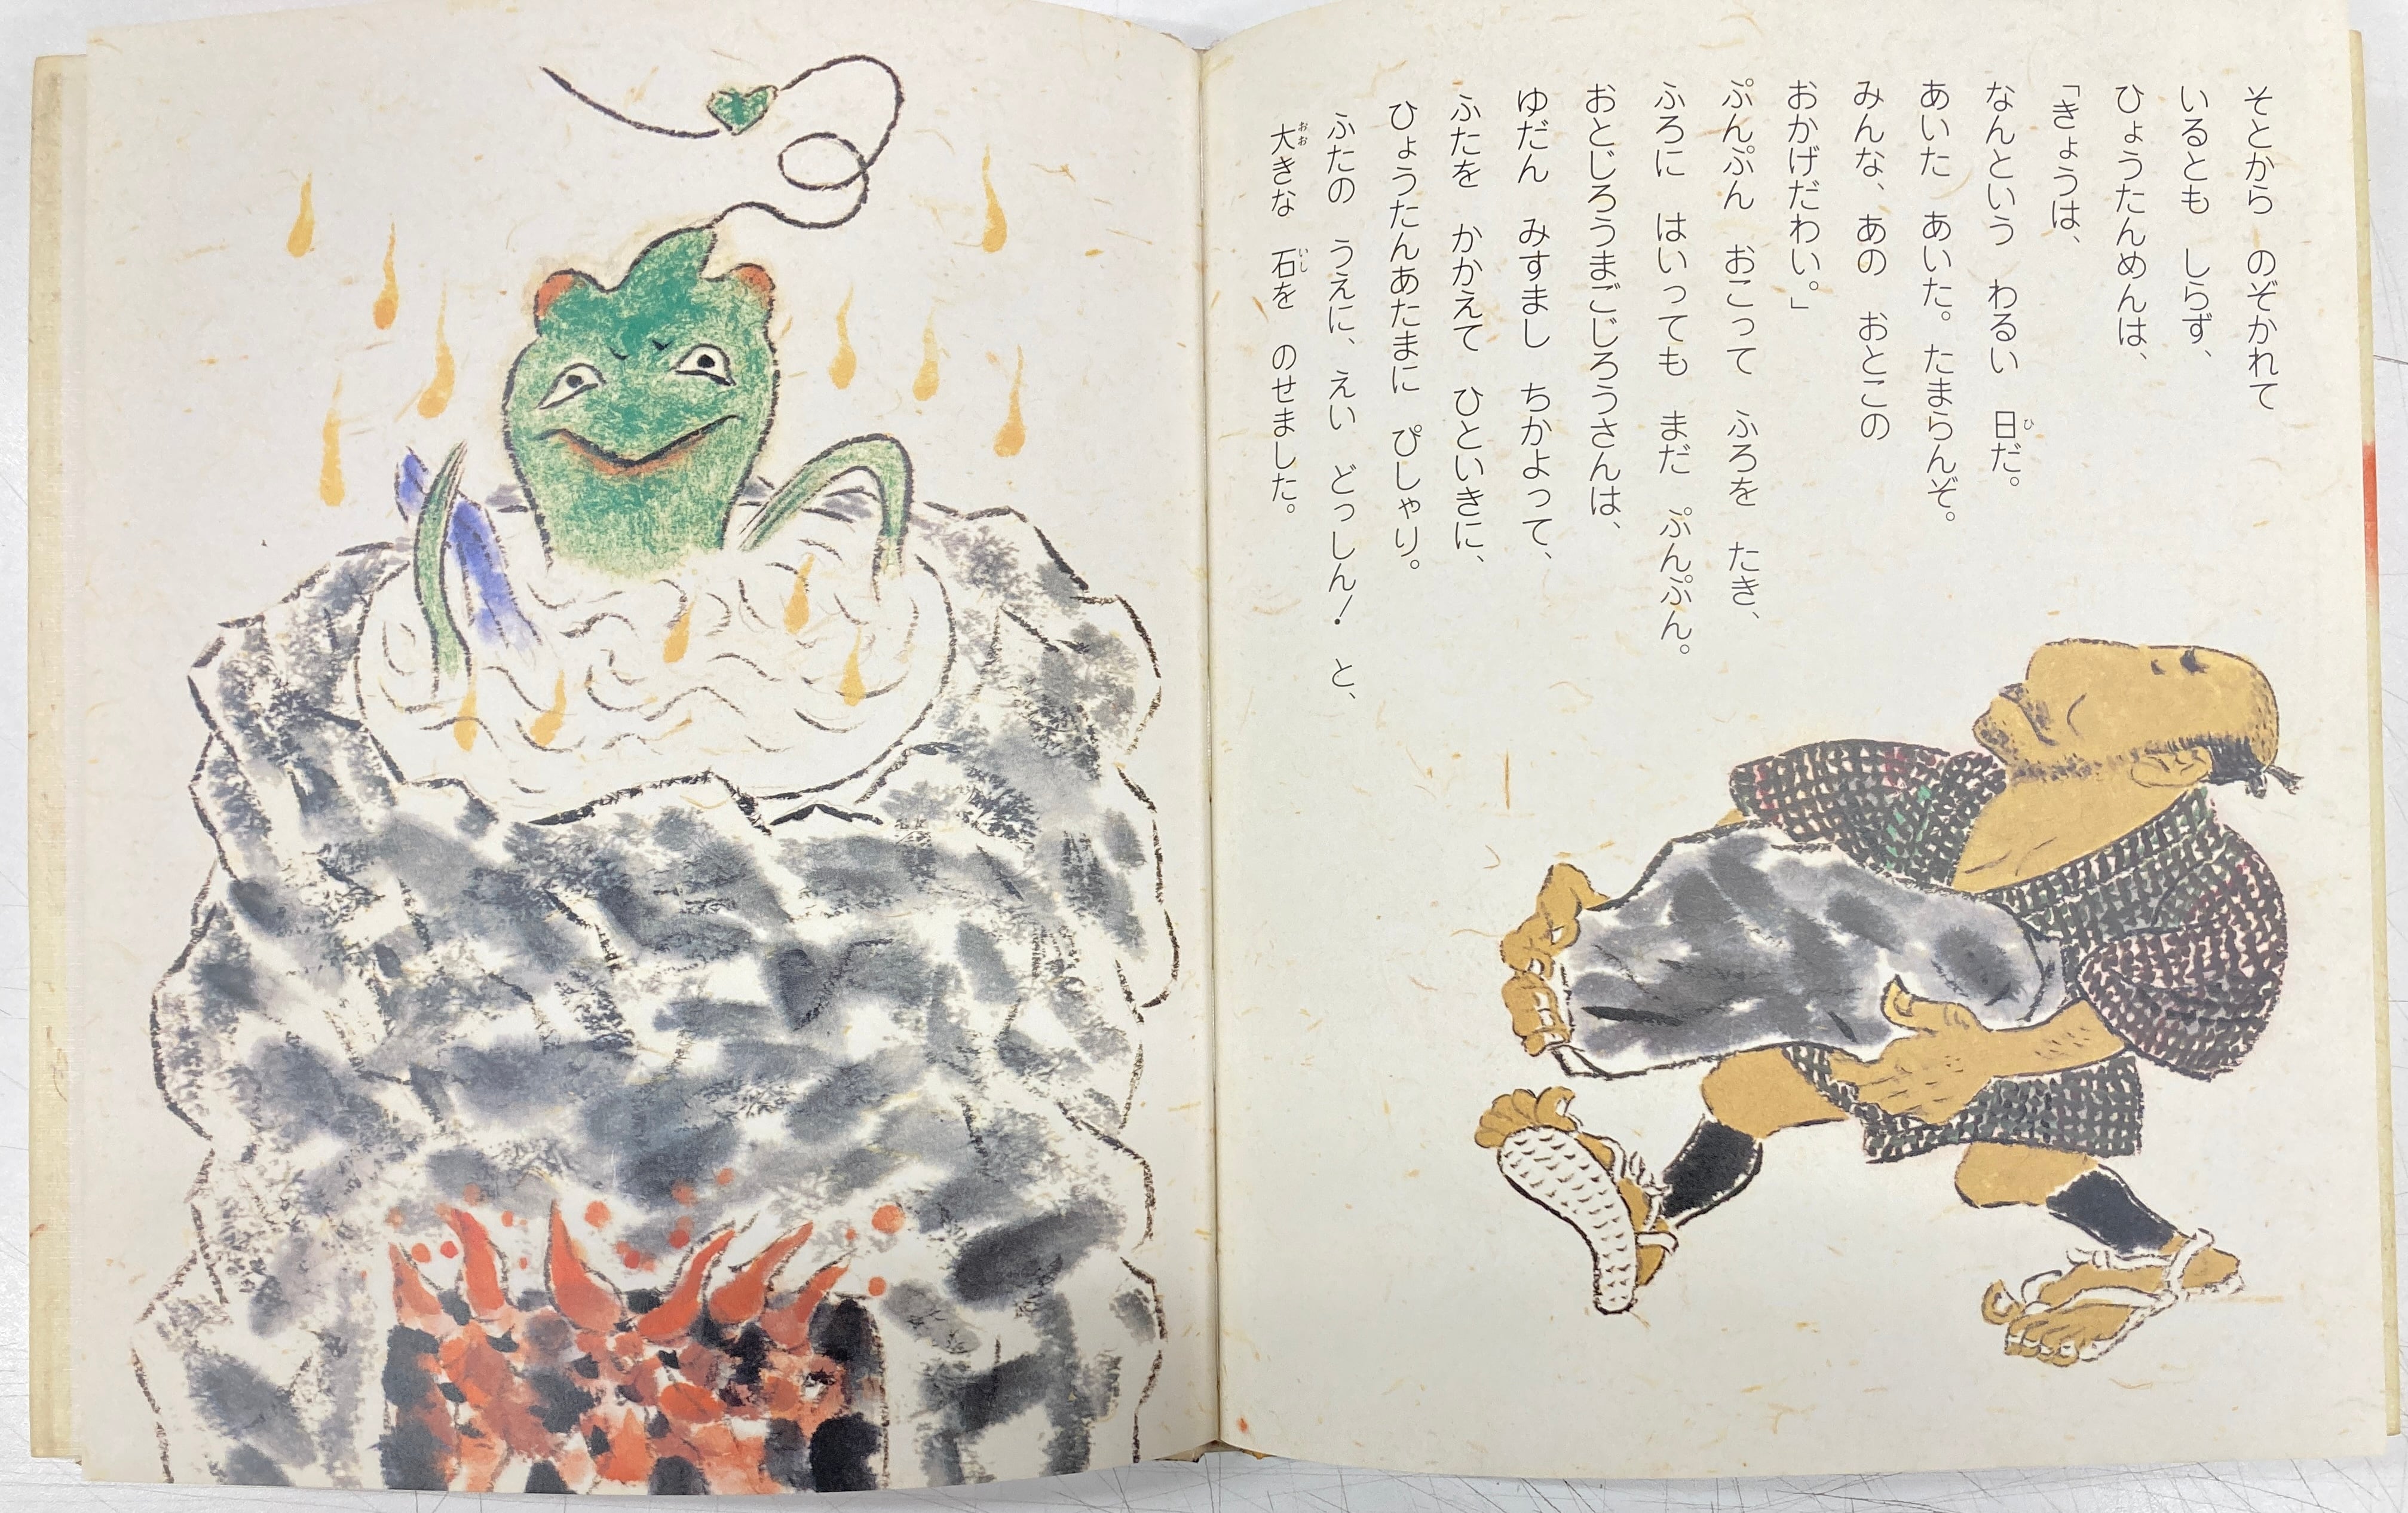 そとから のぞかれて
いるとも しらず、
ひょうたんめんは、
「きょうは、
なんという わるい 日だ。
あいた あいた。たまらんぞ。
みんな、あの おとこの
おかげだわい。」
ぷんぷん おこって ふろを たき、
ふろに はいっても まだ ぷんぷん。
おとじろうまごじろうさんは、
ゆだん みすまし ちかよって、
ふたを かかえて ひといきに、
ひょうたんあたまに ぴしゃり。
ふたの うえに、えい どっしん! と、
大きな 石を のせました。